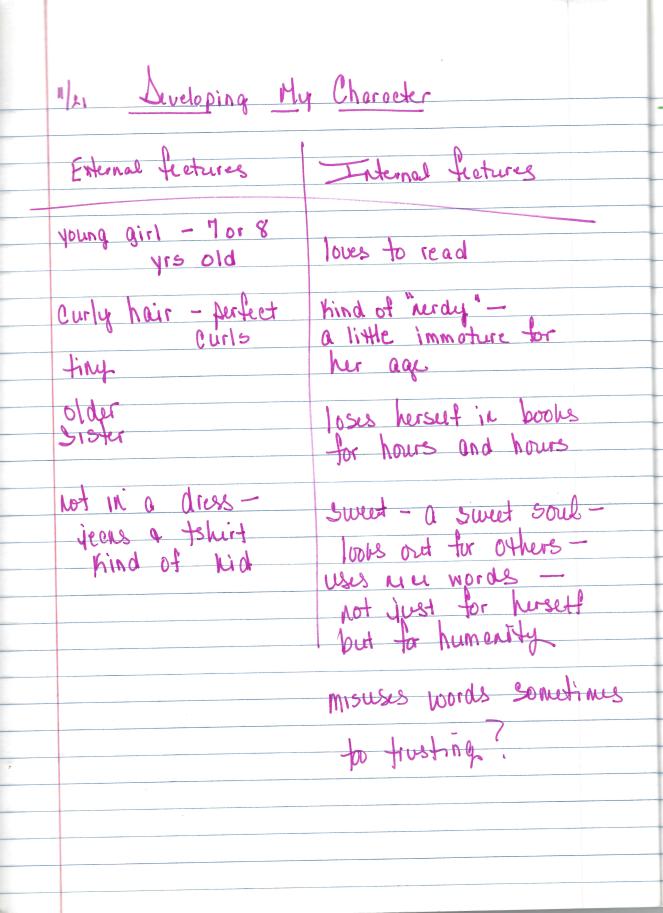 11/21 Developing My Character
External features
young girl - 7 or 8
yrs old
curly hair - perfect
curls
tiny
older
sister
not in a dress -
jeans & tshirt
kind of kid
Internal features
loves to read
kind of "nerdy" -
a little immature for
her age
loses herself in books
for hours and hours
sweet - a sweet soul -
looks out for others -
uses words -
not just for herself
but for humanity
misuses words sometimes
too trusting?